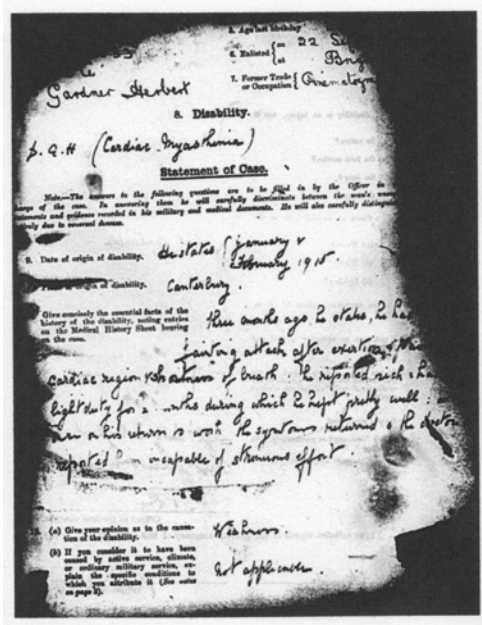 5. Age last birthday
6. Enlisted { on 22 Se
at Brig
7. Former Trade or Occupation { Cinematogra
Gardner Herbert
8. Disability.
(Cardiac. Myasthenia)
Statement of Case.
Note.—The answers to the following questions are to be filled in by the Officer in
charge of the case. In answering them he will carefully discriminate between the man's
statements and evidence recorded in his military and medical documents. He will also carefully distinguish
due to venereal disease.
9. Date of origin of disability. He states { January &
February 1915
origin of disability. Canterbury.
Give concisely the essential facts of the
history of the disability, noting entries
on the Medical History Sheet bearing
on the case.
three months ago, he states, he had
fainting attack after exertion, &
cardiac region & shortness of breath. He reported sick & had
light duty for 2 months during which he kept pretty well:
on his return to work the symptoms returned & the doctor
reported incapable of strenuous effort.
(a) Give your opinion as to the causation of the disability. Weakness
(b) If you consider it to have been
caused by active service, climate,
or ordinary military service, explain the specific conditions to
which you attribute it (See notes
on page 2). Not applicable.